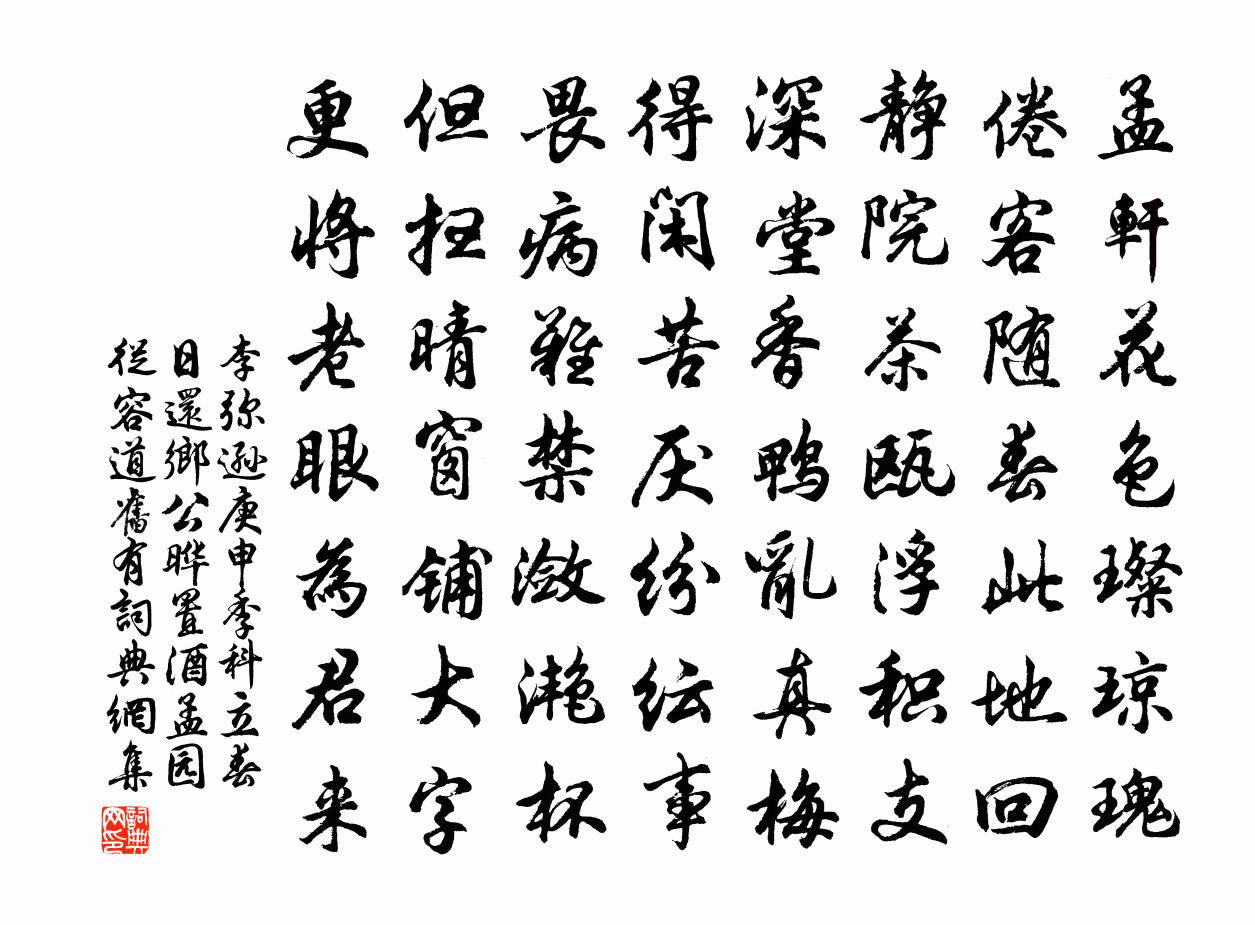 孟軒花色璨琼瑰
倦客随春此地回
静院茶瓯浮积支
深堂香鸭亂真梅
得闲苦厌纷纭事
畏病難禁潋滟杯
但扫晴窗铺大字
更将老眼為君来
李弥逊庚申季科立春
日還鄉公晔置酒孟园
從容道舊有詞典網集
詞典网印